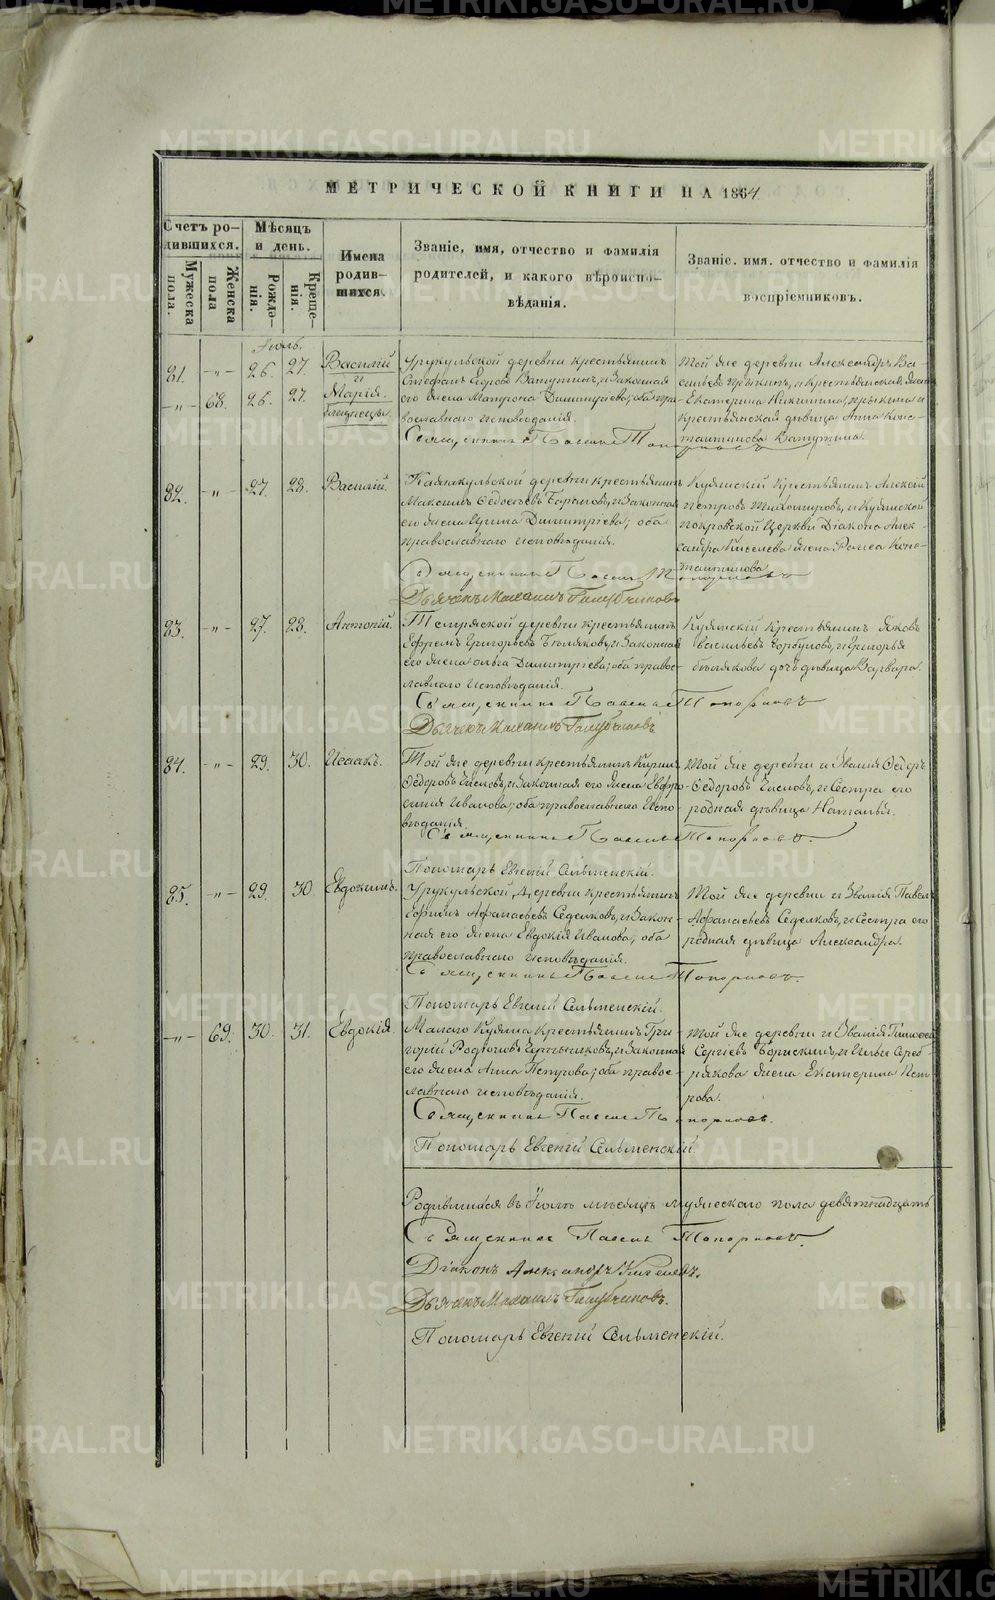 МЕТРИЧЕСКОЙ КНИГИ НА 1864
Счетъ ро-
дившихся.
Мужеска
пола.
Женска
пола
Мѣсяцъ
и день.
Рожде-
нія.
Креще-
нія.
Имена
родив-
шихся.
Званіе, имя, отчество и фамилія
родителей, и какого вѣроиспо-
вѣданія.
Званіе, имя, отчество и фамилія
воспріемниковъ.
Іюль.
81. -„- 26. 27. Василій
и
-„- 68. 26. 27. Марія.
близнецы.
деревни крестьянинъ
Стефанъ Ватутинъ, и законная
его жена Матрона Димитріева; оба пра-
вославнаго исповѣданія.
Священникъ Павелъ Топорковъ
Той же деревни Александръ Ва-
сильевъ и крестьянская жена
Екатерина Никитина и
крестьянская дѣвица Анна Конс-
тантинова Ватутина.
82. -„- 27. 28. Василій.
деревни крестьянинъ
Максимъ Ѳедосѣевъ и законная
его жена Ирина Димитріева; оба
православнаго исповѣданія.
Священникъ Павелъ Топорковъ
Дьячекъ Михаилъ Голубчиковъ
Куяшскій крестьянинъ Алексѣй
Петровъ Тихомировъ, и Куяшской
Покровской Церкви Діакона Алек-
сандра Киселева жена Раиса Конс-
тантинова
83. -„- 27. 28. Антоній.
деревни крестьянинъ
Ефремъ Григорьевъ Бѣляковъ, и законная
его жена Ольга Димитріева; оба правос-
лавнаго исповѣданія.
Священникъ Павелъ Топорковъ
Дьячекъ Михаилъ Голубчиковъ
Куяшскій крестьянинъ Яковъ
Васильевъ Горбуновъ, и Григорья
Бѣлякова дочь дѣвица Варвара.
84. -„- 29. 30. Исаакъ.
Той же деревни крестьянинъ
Ѳедоровъ и законная его жена Евфро-
синія Иванова; оба православнаго испо-
вѣданія.
Священникъ Павелъ Топорковъ.
Пономарь Евгеній Сельменскій.
Той же деревни и званія Ѳедоръ
Ѳедоровъ и сестра его
родная дѣвица Наталья.
85. -„- 29. 30 Евдокимъ.
деревни крестьянинъ
Ефимъ Афанасьевъ Седелковъ, и закон-
ная его жена Евдокія Иванова; оба
православнаго исповѣданія.
Священникъ Павелъ Топорковъ.
Пономарь Евгеній Сельменскій.
Той же деревни и званія Павелъ
Афанасьевъ Седелковъ, и сестра его
родная дѣвица Александра.
-„- 69. 30. 31. Евдокія.
Малаго Куяша крестьянинъ Гри-
горій Родіоновъ и законная
его жена Анна Петрова; оба правос-
лавнаго исповѣданія.
Священникъ Павелъ Топорковъ.
Пономарь Евгеній Сельменскій.
Той же деревни и званія Тимофей
Сергіевъ Борискинъ, и Ильи Сереб-
рякова жена Екатерина Пет-
рова.
Родившихся въ Іюлѣ мѣсяцѣ мужескаго пола девятнадцать
Священникъ Павелъ Топорковъ.
Діаконъ Александръ Киселевъ.
Дьячекъ Михаилъ Голубчиковъ.
Пономарь Евгеній Сельменскій.
METRIKI.GASO-URAL.RU